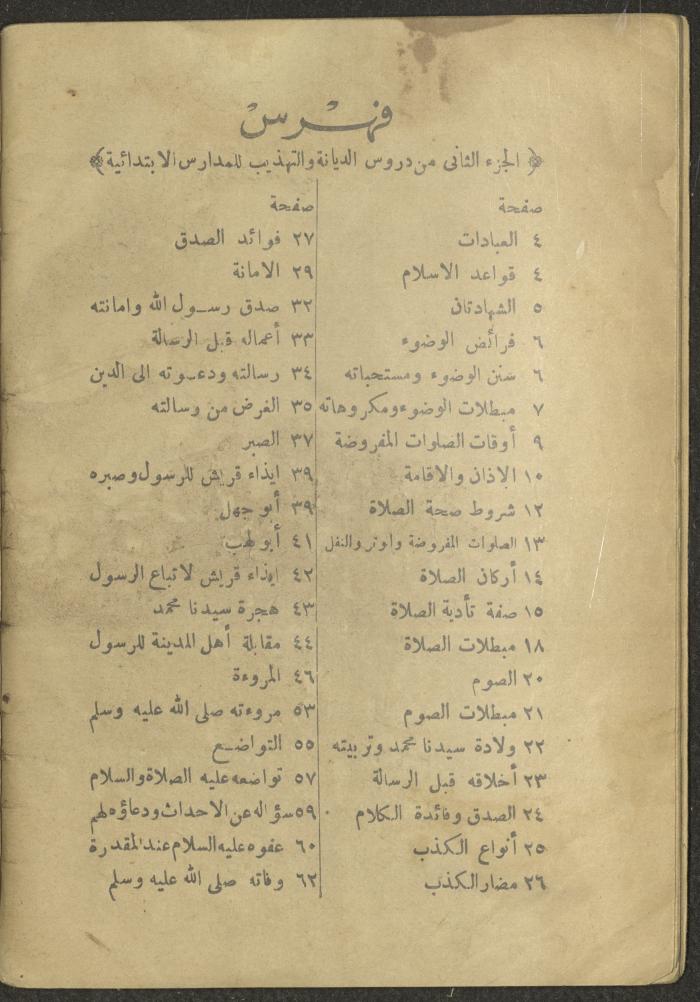 فهرس
﴿ الجزء الثانى من دروس الديانة والتهذيب للمدارس الابتدائية ﴾
صفحة
٤ العبادات
٤ قواعد الاسلام
٥ الشهادتان
٦ فرائض الوضوء
٦ سنن الوضوء ومستحباته
٧ مبطلات الوضوء ومكروهاته
٩ أوقات الصلوات المفروضة
١٠ الاذان والاقامة
١٢ شروط صحة الصلاة
١٣ الصلوات المفروضة والوتر والنفل
١٤ أركان الصلاة
١٥ صفة تأدية الصلاة
١٨ مبطلات الصلاة
٢٠ الصوم
٢١ مبطلات الصوم
٢٢ ولادة سيدنا محمد وتربيته
٢٣ أخلاقه قبل الرسالة
٢٤ الصدق وفائدة الكلام
٢٥ أنواع الكذب
٢٦ مضار الكذب
صفحة
٢٧ فوائد الصدق
٢٩ الامانة
٣٢ صدق رسول الله وامانته
٣٣ أعماله قبل الرسالة
٣٤ رسالته ودعوته الى الدين
٣٥ الغرض من رسالته
٣٧ الصبر
٣٩ ايذاء قريش للرسول وصبره
٣٩ أبو جهل
٤١ أبو لهب
٤٢ ايذاء قريش لاتباع الرسول
٤٣ هجرة سيدنا محمد
٤٤ مقابلة أهل المدينة للرسول
٤٦ المروءة
٥٣ مروءته صلى الله عليه وسلم
٥٥ التواضع
٥٧ تواضعه عليه الصلاة والسلام
٥٩ سؤاله عن الاحداث ودعاؤه لهم
٦٠ عفوه عليه السلام عند المقدرة
٦٢ وفاته صلى الله عليه وسلم